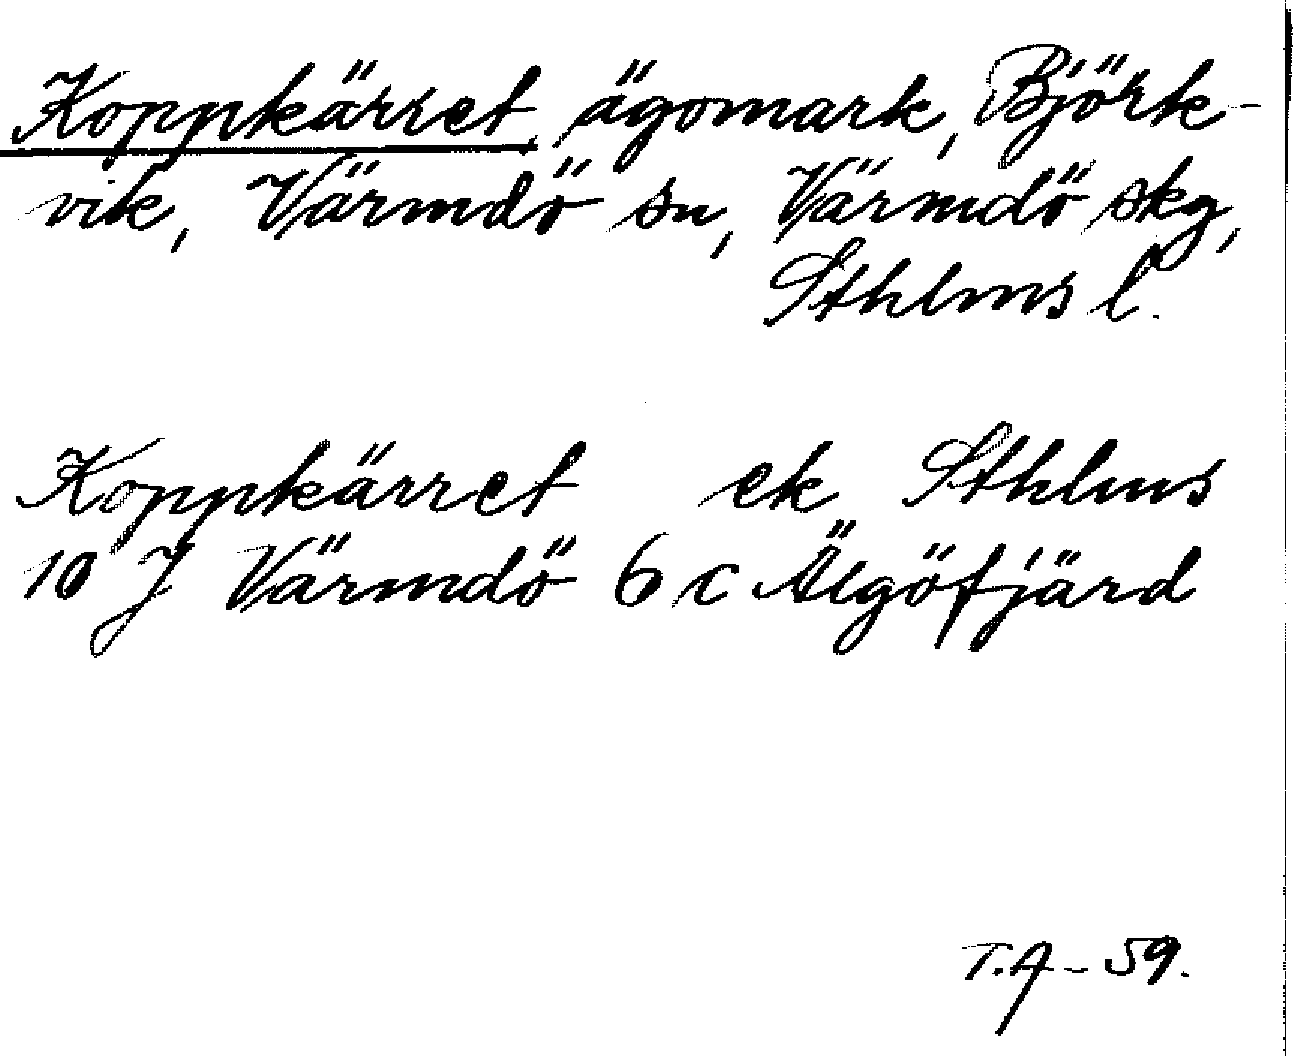 Koppkärret, ägomark, Björk-
vik, Värmdö sn, Värmdö skg,
Sthlms l.
Koppkärret ek Sthlms
10 J Värmdö 6 c Älgöfjärd
T.A-59.